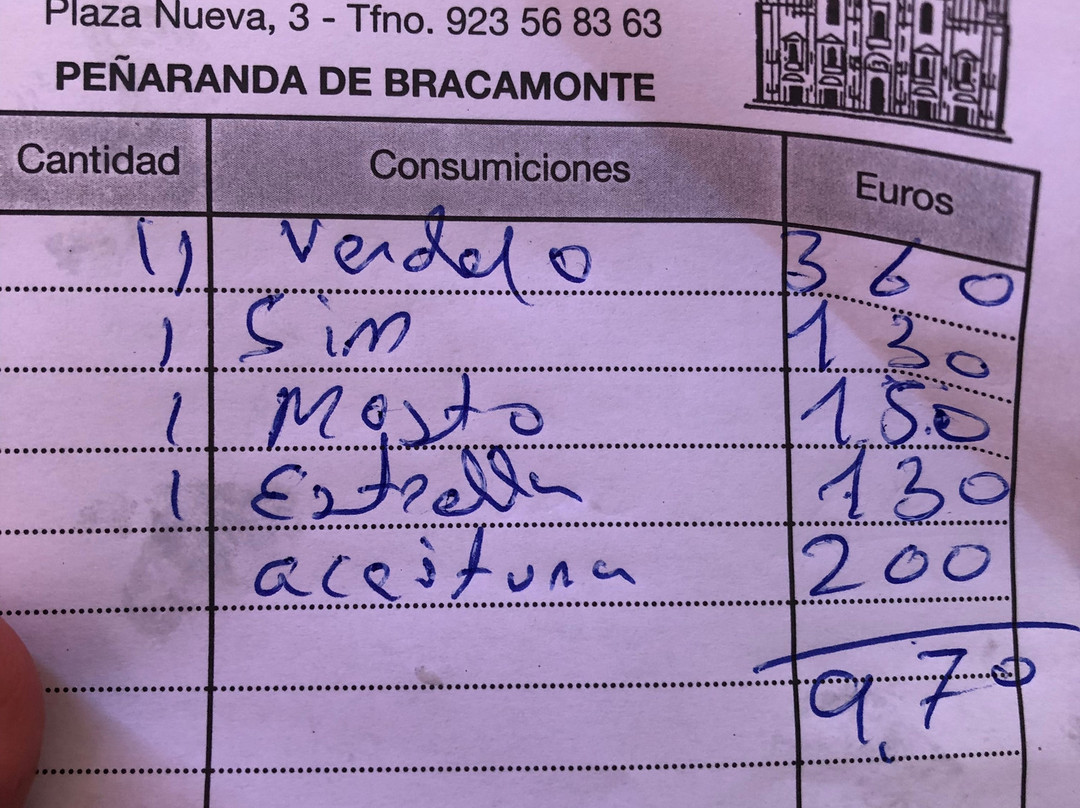 Plaza Nueva, 3 - Tfno. 923 56 83 63
PEÑARANDA DE BRACAMONTE
Cantidad Consumiciones Euros
11 Verdejo 3 60
1 Sin 1 30
1 Mosto 1.50
1 Estrella 1 30
aceituna 2 00
9,70